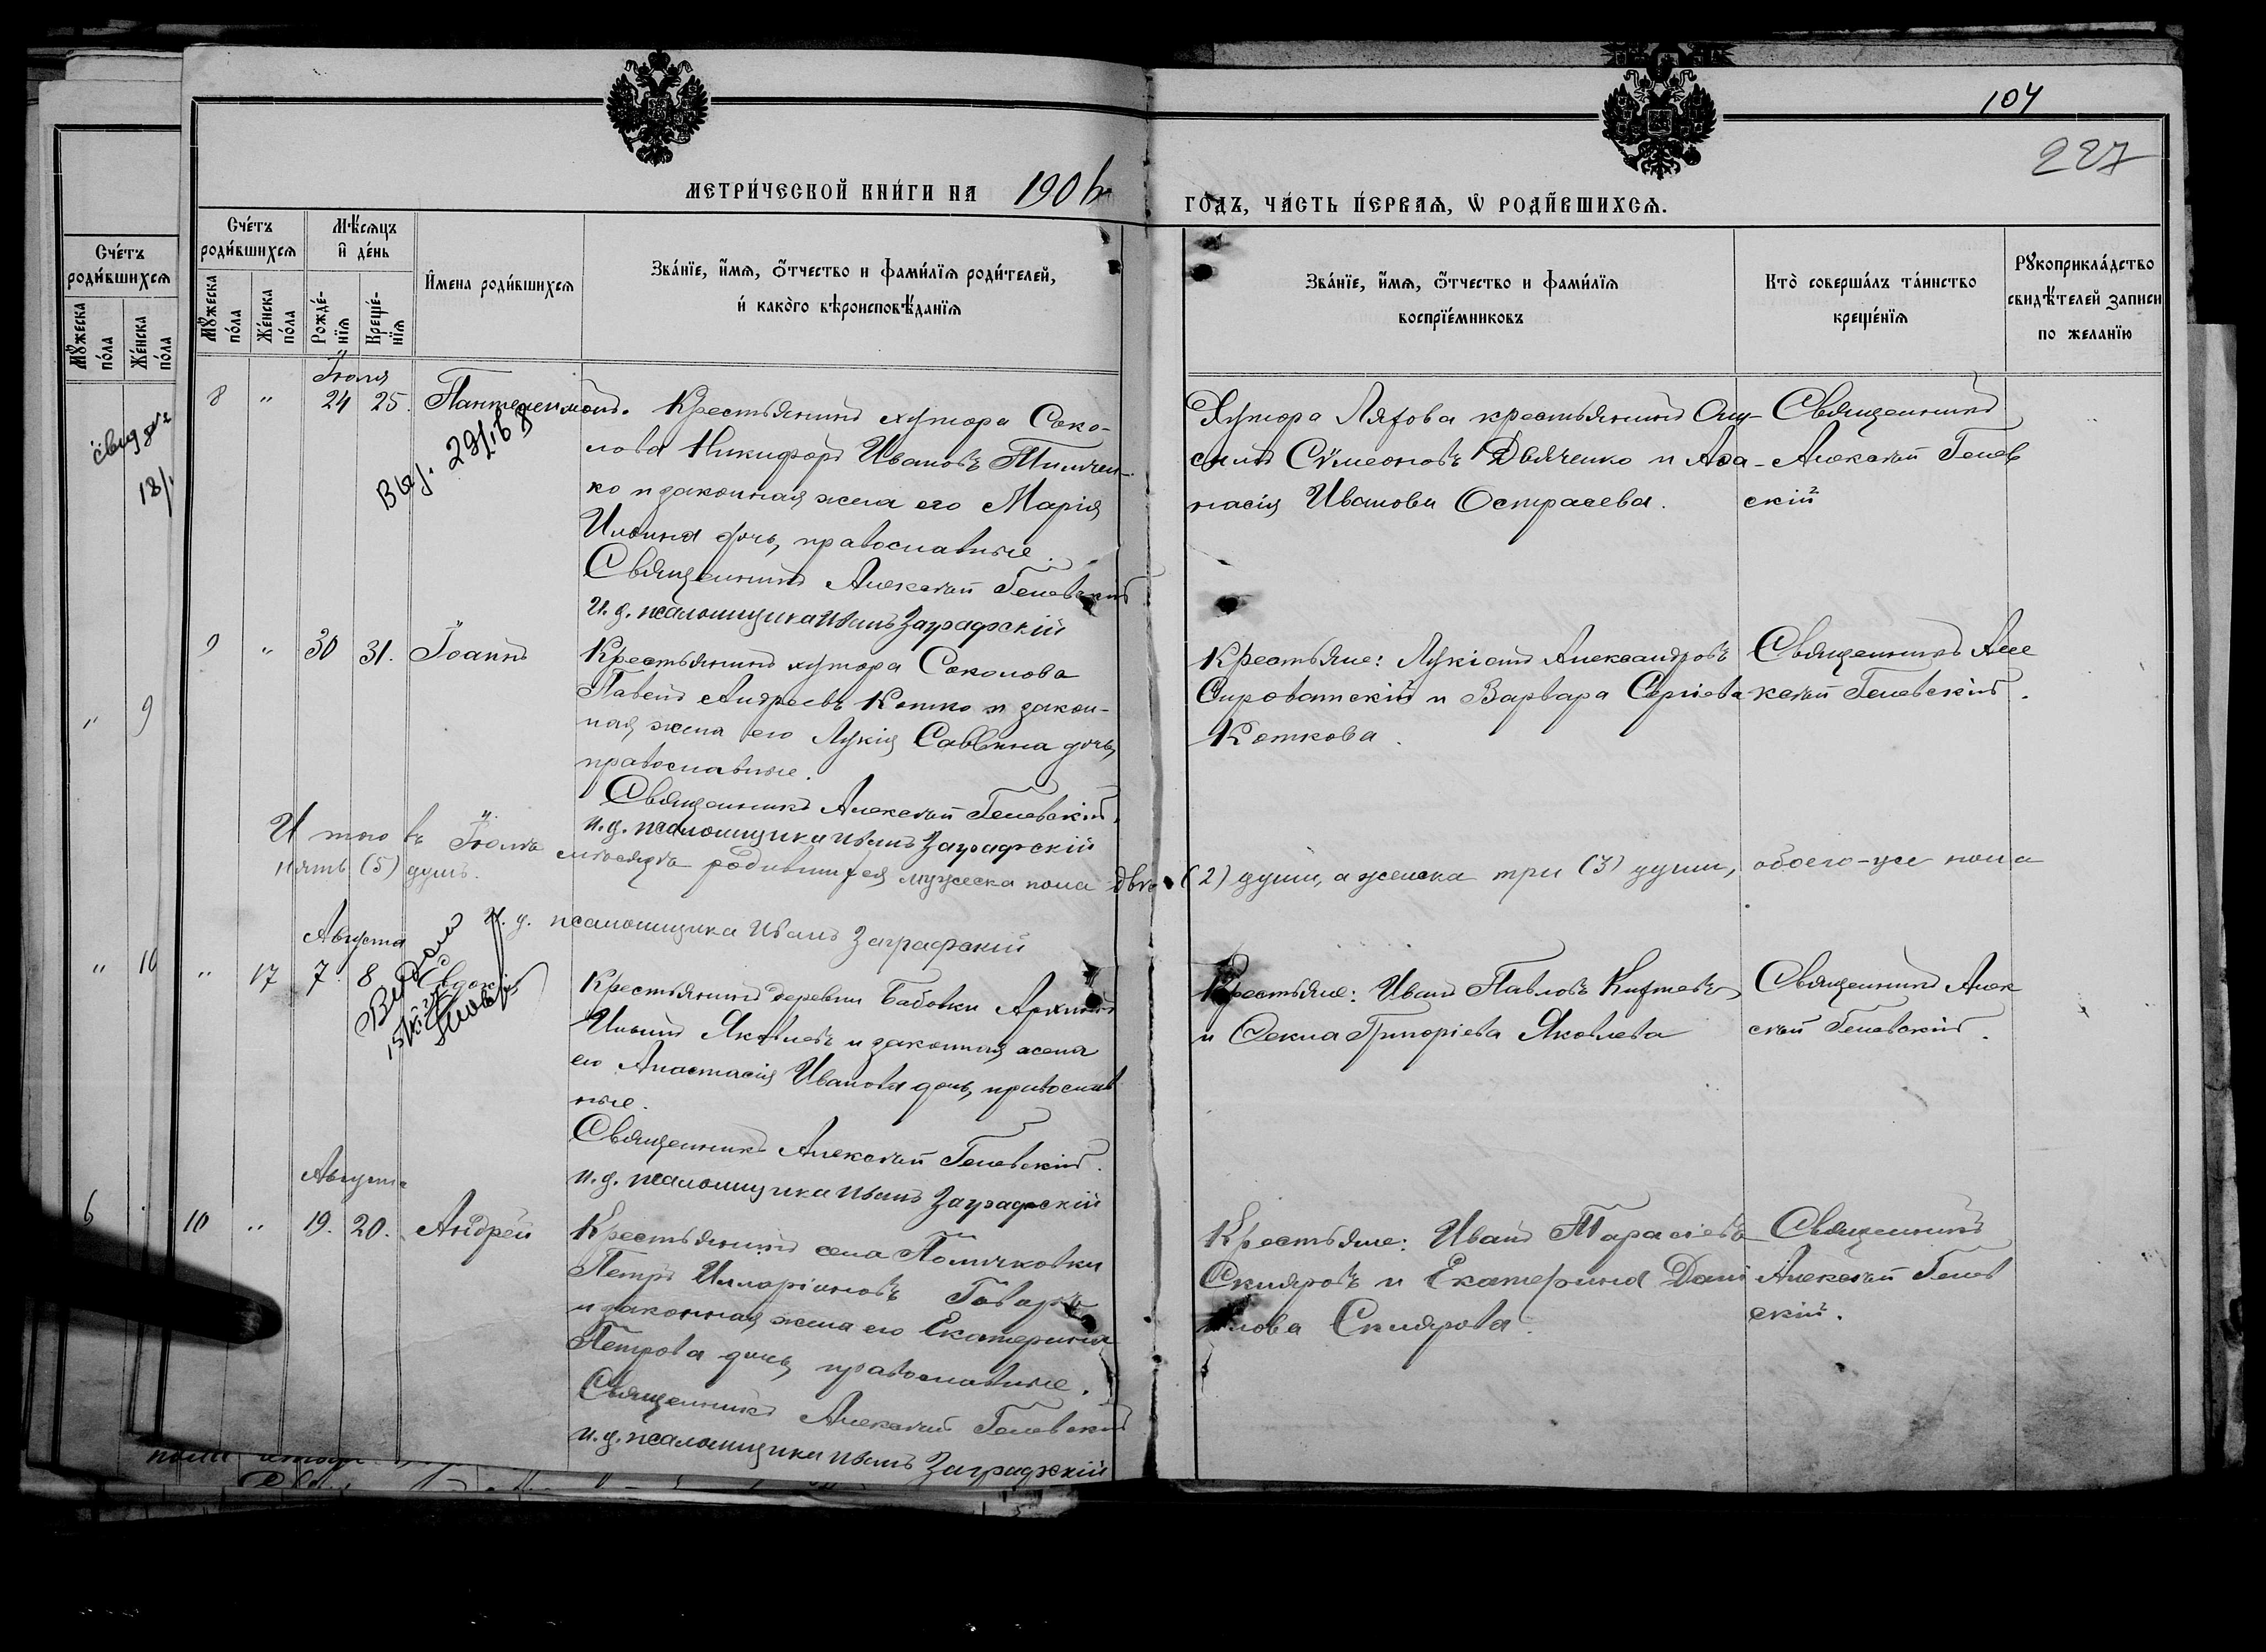 104
227
МЕТРИ́ЧЕСКОЙ КНИ́ГИ НА 1906
ГОДЪ, ЧА́СТЬ ПЕ́РВАЯ, Ѡ РОДИ́ВШИХСЯ.
Сче́тъ роди́вшихся
Му́жеска по́ла
Же́нска по́ла
Сче́тъ роди́вшихся
Му́жеска по́ла
Же́нска по́ла
Мѣ́сяцъ и де́нь
Рожде́нїя
Креще́нїя
И́мена роди́вшихся
Зва́нїе, и́мя, о́тчество и фами́лїя роди́телей,
и како́го вѣроисповѣ́данїя
Зва́нїе, и́мя, о́тчество и фами́лїя
воспрїе́мниковъ
Кто̀ соверша́лъ та́инство
креще́нїя
Рукоприкла́дство
свидѣ́телей записи
по жела́нїю
Іюля
8 " 24 25. Пантелеимонъ.
Крестьянинъ хутора Соко-
лова Никифоръ Ивановъ
ко и законная жена его Марія
Ильина дочь, православные.
Священникъ Алексѣй
и. д. псаломщика Иванъ Заграфскій
Хутора Ляхова крестьянинъ
Сѵмеоновъ Дьяченко и Аѳа-
насія Иванова
Священникъ
Алексѣй
скій
9 " 30 31. Іоаннъ
Крестьянинъ хутора Соколова
Павелъ Андреевъ Котко и закон-
ная жена его Лукія Саввина дочь,
православные.
Священникъ Алексѣй
и. д. псаломщика Иванъ Заграфскій
Крестьяне: Лукіанъ Александровъ
Сыроватскій и Варвара Сергіева
Коткова.
Священникъ Але
ксѣй
Итого въ Іюлѣ мѣсяцѣ родившихся мужеска пола двѣ (2) души, а женска три (3) души, обоего-же пола
пять (5) душъ.
и. д. псаломщика Иванъ Заграфскій
Августа
" 17 7. 8
Выдана
Крестьянинъ деревни Бабовки Архипъ
Ильинъ Яковлевъ и законная жена
его Анастасія Иванова дочь, православ
ные.
Священникъ Алексѣй
и. д. псаломщика Иванъ Заграфскій
Крестьяне: Иванъ Павловъ
и Ѳекла Григоріева Яковлева
Священникъ Алек
сѣй
Августа
10 " 19. 20. Андрей
Крестьянинъ села
Петръ Илларіоновъ
и законная жена его Екатерина
Петрова дочь, православные.
Священникъ Алексѣй
и. д. псаломщика Иванъ Заграфскій
Крестьяне: Иванъ Тарасіевъ
Скляровъ и Екатерина Дані
илова Склярова.
Священникъ
Алексѣй
скій.
" 9
" 10
6